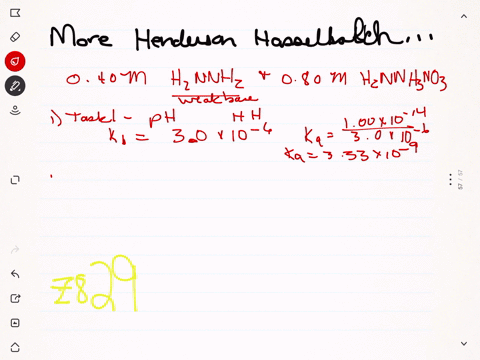 More Henderson Hasselbalch...
0.40M H₂NNH₂ + 0.80M H₂NNH₃NO₃
weak base
1) Task1 - pH HH
Kb = 3.0 × 10⁻⁶ Ka = 1.00 × 10⁻¹⁴ / 3.0 × 10⁻⁶
Ka = 3.33 × 10⁻⁹
z829
57 / 57